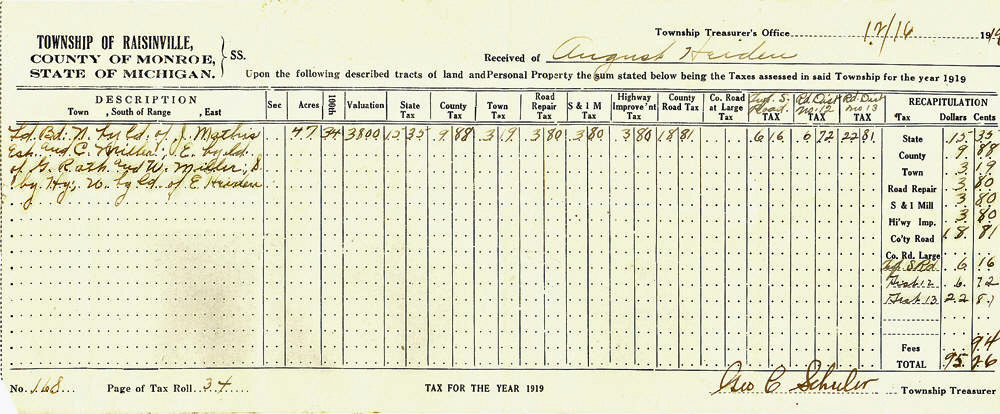 TOWNSHIP OF RAISINVILLE,
COUNTY OF MONROE,
STATE OF MICHIGAN.
SS.
Township Treasurer's Office 12/16 1919
Received of August Heiden
Upon the following described tracts of land and Personal Property the sum stated below being the Taxes assessed in said Township for the year 1919
DESCRIPTION
Town , South of Range , East
Sec Acres 100th Valuation State Tax County Tax Town Tax Road Repair Tax S & I M Tax Highway Improve'nt Tax County Road Tax Co. Road at Large Tax S. Road. TAX Rd. Dist No. 12 TAX Rd. Dist No 13 TAX
RECAPITULATION
Tax Dollars Cents
Ld. Bd. N. by ld. of J. Mathis 47 34 3800 15 35 9 88 3 19 3 80 3 80 3 80 18 81 6 16 6 72 22 81
Est. and C. Miller, E. by ld.
of G. Rath and W. Miller, S.
by Hy., W. by ld. of E Heiden
State 15 35
County 9 88
Town 3 19
Road Repair 3 80
S & I Mill 3 80
Hi'wy Imp. 3 80
Co'ty Road 18 81
Co. Rd. Large
S Rd. 6 16
Dist 12 6 72
Dist 13 22 81
Fees 94
TOTAL 95 26
No. 168 Page of Tax Roll 34 TAX FOR THE YEAR 1919 Geo C. Schuler Township Treasurer